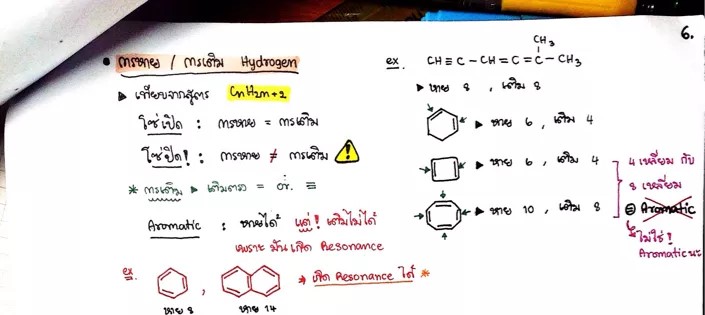 6.
• การหาย / การเติม Hydrogen
▶ เทียบจากสูตร CnH2n+2
โซ่เปิด : การหาย = การเติม
โซ่ปิด! : การหาย ≠ การเติม
* การเติม ▶ เติมตรง = or. ≡
Aromatic : หายได้ แต่! เติมไม่ได้
เพราะ มันเกิด Resonance
ex.
,
* เกิด Resonance ได้ *
หาย 8
หาย 14
ex.
CH3
CH ≡ C - CH = C = C - CH3
▶ หาย 8 , เติม 8
▶ หาย 6 , เติม 4
▶ หาย 6 , เติม 4
▶ หาย 10 , เติม 8
4 เหลี่ยม กับ
8 เหลี่ยม
Aromatic
ไม่ใช่ !
Aromatic นะ